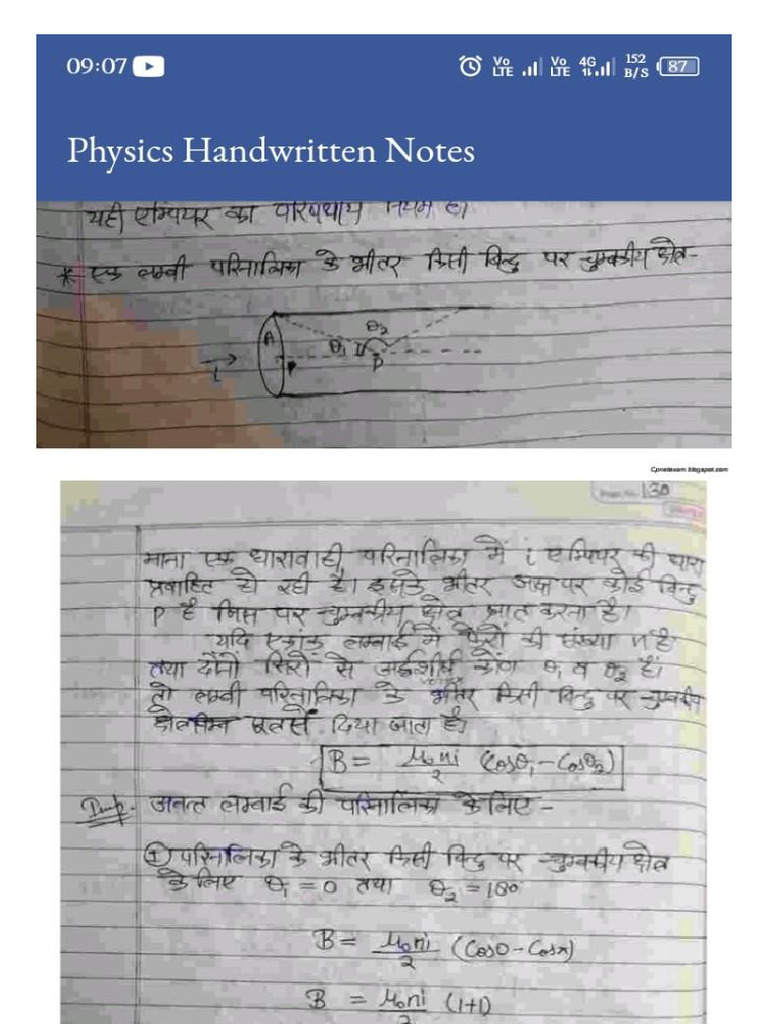 09:07
Vo LTE Vo LTE 4G 152 B/S 87
Physics Handwritten Notes
यही एम्पियर का परिपथीय नियम है।
* एक लम्बी परिनालिका के भीतर किसी बिन्दु पर चुम्बकीय क्षेत्र-
A θ₁ θ₂ P P
i
Cpnetexam.blogspot.com
130
माना एक धारावाही परिनालिका में i एम्पियर की धारा
प्रवाहित हो रही है। इसके भीतर अक्ष पर कोई बिन्दु
P है जिस पर चुम्बकीय क्षेत्र ज्ञात करना है।
यदि एकांक लम्बाई में फेरों की संख्या n है
तथा दोनों सिरों से अर्द्धशीर्ष कोण θ₁ व θ₂ है।
तो लम्बी परिनालिका के भीतर किसी बिन्दु पर चुम्बकीय
क्षेत्र निम्न सूत्र से दिया जाता है।
B = μ₀ni/2 (cosθ₁ - cosθ₂)
Imp. अनन्त लम्बाई की परिनालिका के लिए -
① परिनालिका के भीतर किसी बिन्दु पर चुम्बकीय क्षेत्र
के लिए θ₁ = 0 तथा θ₂ = 180
B = μ₀ni/2 (cos0 - cosπ)
B = μ₀ni/2 (1+1)